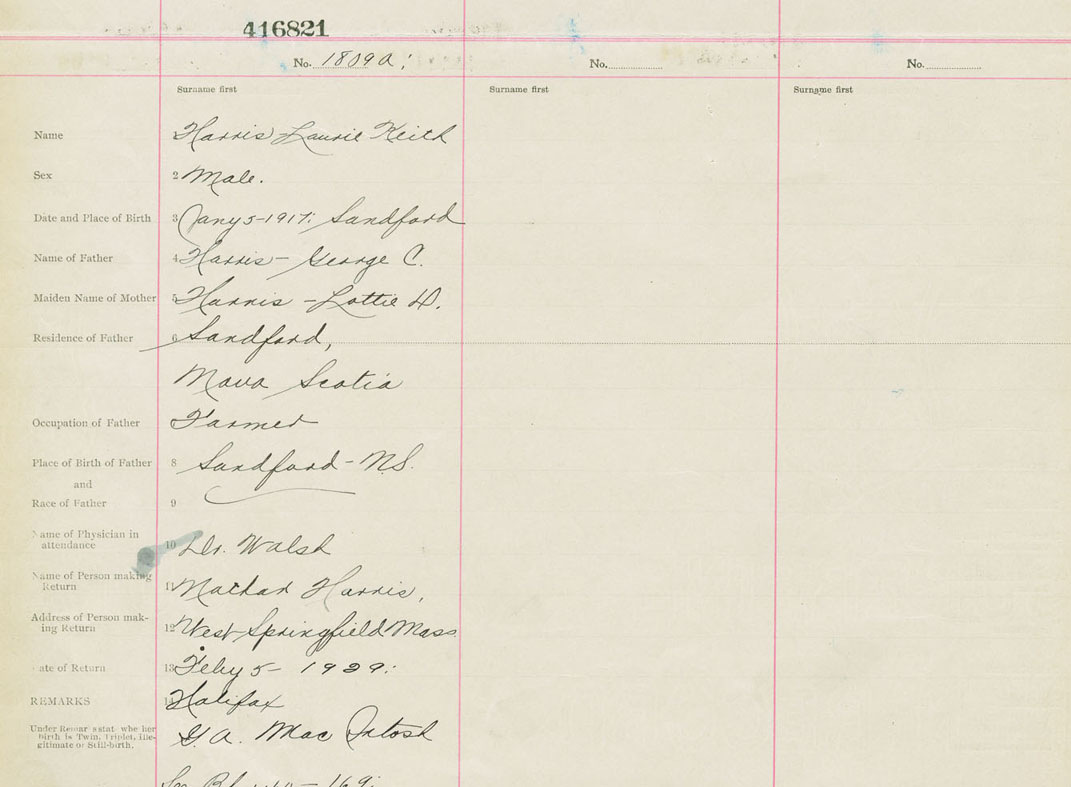 416821
No. 1809a; No. No.
Surname first Surname first Surname first
Name Harris-Laurie Keith
Sex 2 Male.
Date and Place of Birth 3 Jany 5-1917; Sandford
Name of Father 4 Harris- George C.
Maiden Name of Mother 5 Harris - Lottie D.
Residence of Father 6 Sandford,
Nova Scotia
Occupation of Father Farmer
Place of Birth of Father 8 Sandford - N.S.
and
Race of Father 9
Name of Physician in
attendance 10 Dr. Walsh
Name of Person making
Return 11 Nathan Harris,
Address of Person mak-
ing Return 12 West Springfield Mass
ate of Return 13 Feby 5- 1929:
REMARKS 14 Halifax
Under Remarks stat whe her
Birth is Twin, Triplet, ille-
gitimate or Still-birth. G. A. MacIntosh